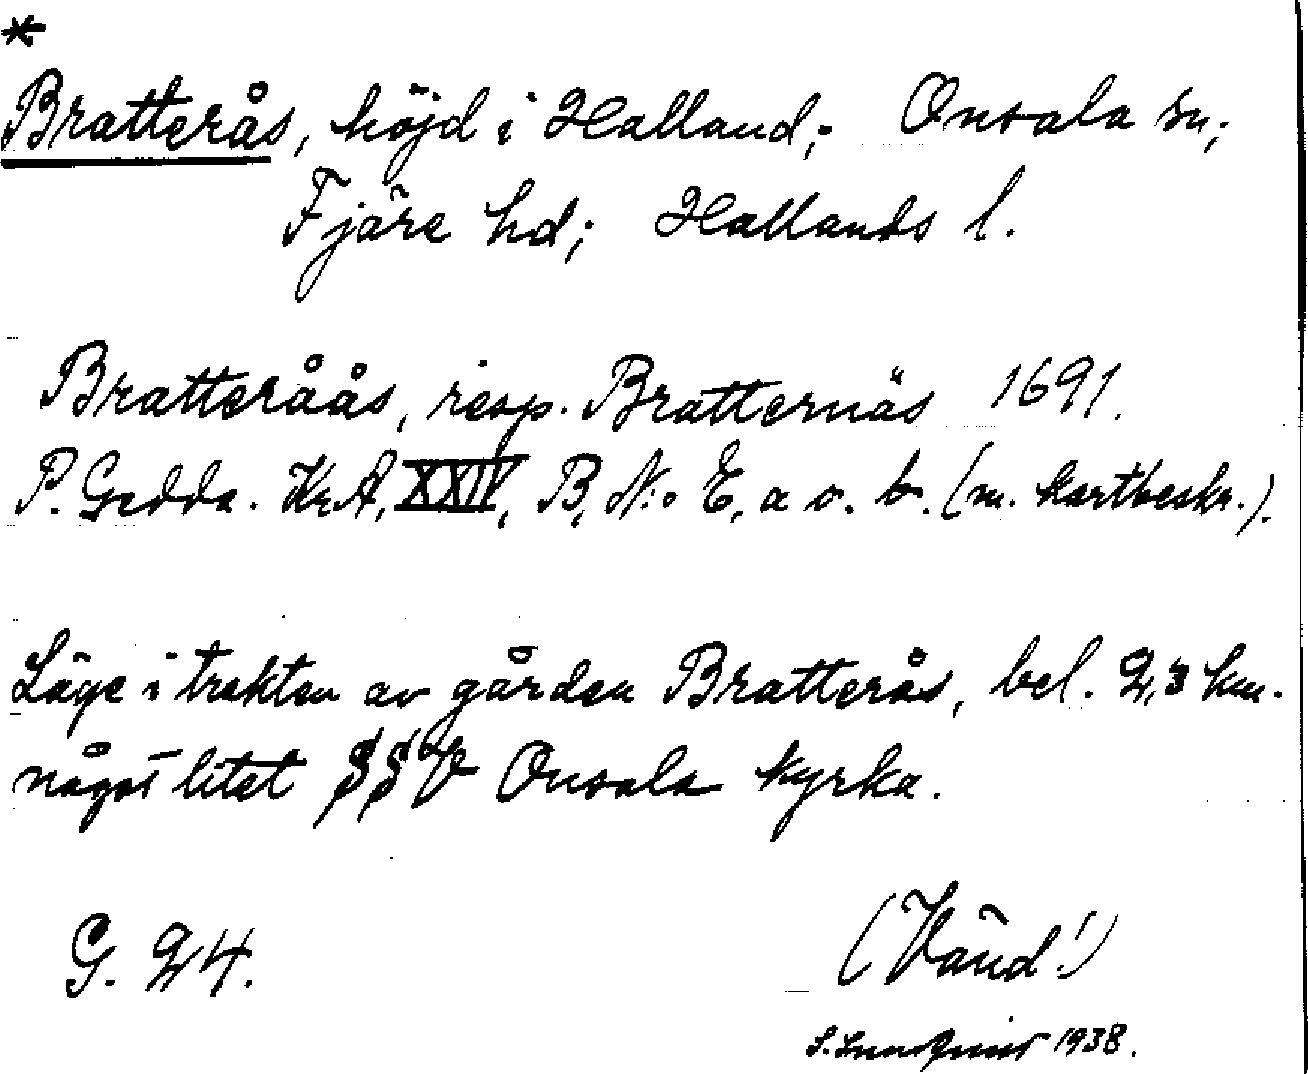 *
Bratterås, höjd i Halland; Onsala sn;
Fjäre hd; Hallands l.
Bratteråås, resp. Bratternäs 1691.
P. Gedda. KrA, XXIV, B, N:o E, a o. b. (m. kartbeskr.).
Läge i trakten av gården Bratterås, bel. 2,3 km.
något litet SSV Onsala kyrka.
G. 24.
(Vänd!)
S. Lundqvist 1938.